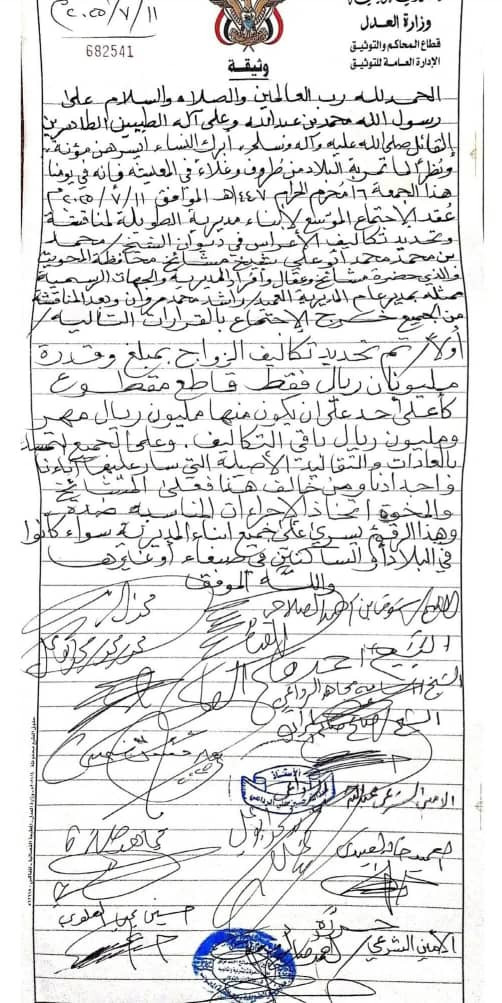 ٢٠٢٥/٧/١١م
682541
وزارة العدل
قطاع المحاكم والتوثيق
الإدارة العامة للتوثيق
وثيقة
الحمد لله رب العالمين والصلاه والسلام على
رسول الله محمد بن عبدالله وعلى آله الطيبين الطاهرين
القائل صلى الله عليه وآله وسلم ابرك النساء ايسرهن مؤنة
ونظراً لما تمر به البلاد من ظروف وغلاء في المعيشة فإنه في يومنا
هذا الجمعة ١٦ محرم الحرام ١٤٤٧هـ الموافق ٢٠٢٥/٧/١١م
عُقد الإجتماع الموسع لأبناء مديرية الطويلة لمناقشة
وتحديد تكاليف الأعراس في ديوان الشيخ/ محمد
بن محمد محمد ابو علي شيخ مشائخ محافظة المحويت
والذي حضره مشائخ وعقال وأفراد المديرية والجهات الرسمية
ممثله بمدير عام المديرية العميد راشد محمد مروان وبعد المناقشة
من الجميع خرج الإجتماع بالقرارات التاليه/
أولاً/ تم تحديد تكاليف الزواج بمبلغ وقدرة
مليونان ريال فقط قاطع مقطوع
كأعلى حد على ان يكون منها مليون ريال مهر
ومليون ريال باقي التكاليف. وعلى الجميع التمسك
بالعادات والتقاليد الأصيلة التي سار عليها آباءنا
واجدادنا ومن خالف هذا فعلى المشائخ
والمخوة اتخاذ الإجراءات المناسبه ضده
وهذا الرقم يسري على جميع ابناء المديرية سواء كانوا
في البلاد أو الساكنين في صنعاء أو غيرها
والله الموفق
احمد الصلاحي
الشيخ احمد
الشيخ مجاهد الرداعي
الشيخ صالح
الأستاذ
الامين الشرعي عبدالله
مجاهد صلاح
حسين يحيى العلوي
الأمين الشرعي/